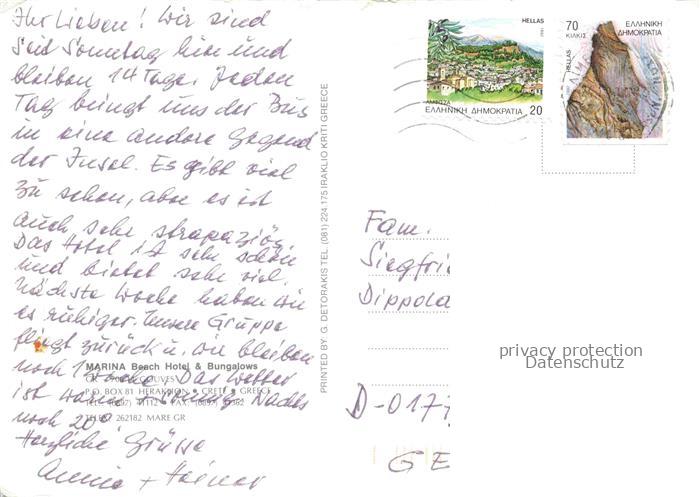 Ihr Lieben! Wir sind
Seit Sonntag hier und
bleiben 14 Tage. Jeden
Tag bringt uns der Bus
in eine andere Gegend
der Insel. Es gibt viel
zu sehen, aber es ist
auch sehr strapaziös.
Das Hotel ist sehr schön
und bietet sehr viel.
Nächste Woche haben wir
es ruhiger. Unsere Gruppe
fliegt zurück u. wir bleiben
noch 1 Woche. Das Wetter
ist Nachts
noch 20°
Herzliche Grüsse
+ Heiner
MARINA Beach Hotel & Bungalows
GOUVES
P.O. BOX 81 HERAKLION • CRETE • GREECE
TELEX 262182 MARE GR
PRINTED BY: G. DETORAKIS TEL. (081) 224.175 IRAKLIO KRITI GREECE
HELLAS
ΕΛΛΗΝΙΚΗ ΔΗΜΟΚΡΑΤΙΑ 20
70 ΕΛΛΗΝΙΚΗ
ΚΙΛΚΙΣ ΔΗΜΟΚΡΑΤΙΑ
HELLAS
Fam.
Siegfri
Dippola
D-0177
GE
privacy protection
Datenschutz